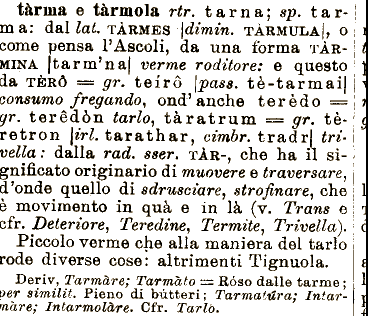 tàrma e tàrmola rtr. tarna; sp. tar-
ma: dal lat. TÀRMES |dimin. TÀRMULA|, o
come pensa l'Ascoli, da una forma TÀR-
MINA |tarm'na| verme roditore: e questo
da TÈRÔ = gr. teírô |pass. tè-tarmai|
consumo fregando, ond'anche terèdo =
gr. terêdòn tarlo, tàratrum = gr. tè-
retron |irl. tarathar, cimbr. tradr| tri-
vella: dalla rad. sscr. TÀR-, che ha il si-
gnificato originario di muovere e traversare,
d'onde quello di sdrusciare, strofinare, che
è movimento in quà e in là (v. Trans e
cfr. Deteriore, Teredine, Termite, Trivella).
Piccolo verme che alla maniera del tarlo
rode diverse cose: altrimenti Tignuola.
Deriv, Tarmàre; Tarmàto = Róso dalle tarme;
per similit. Pieno di bútteri; Tarmatúra; Intar-
màre; Intarmolàre. Cfr. Tarlo.